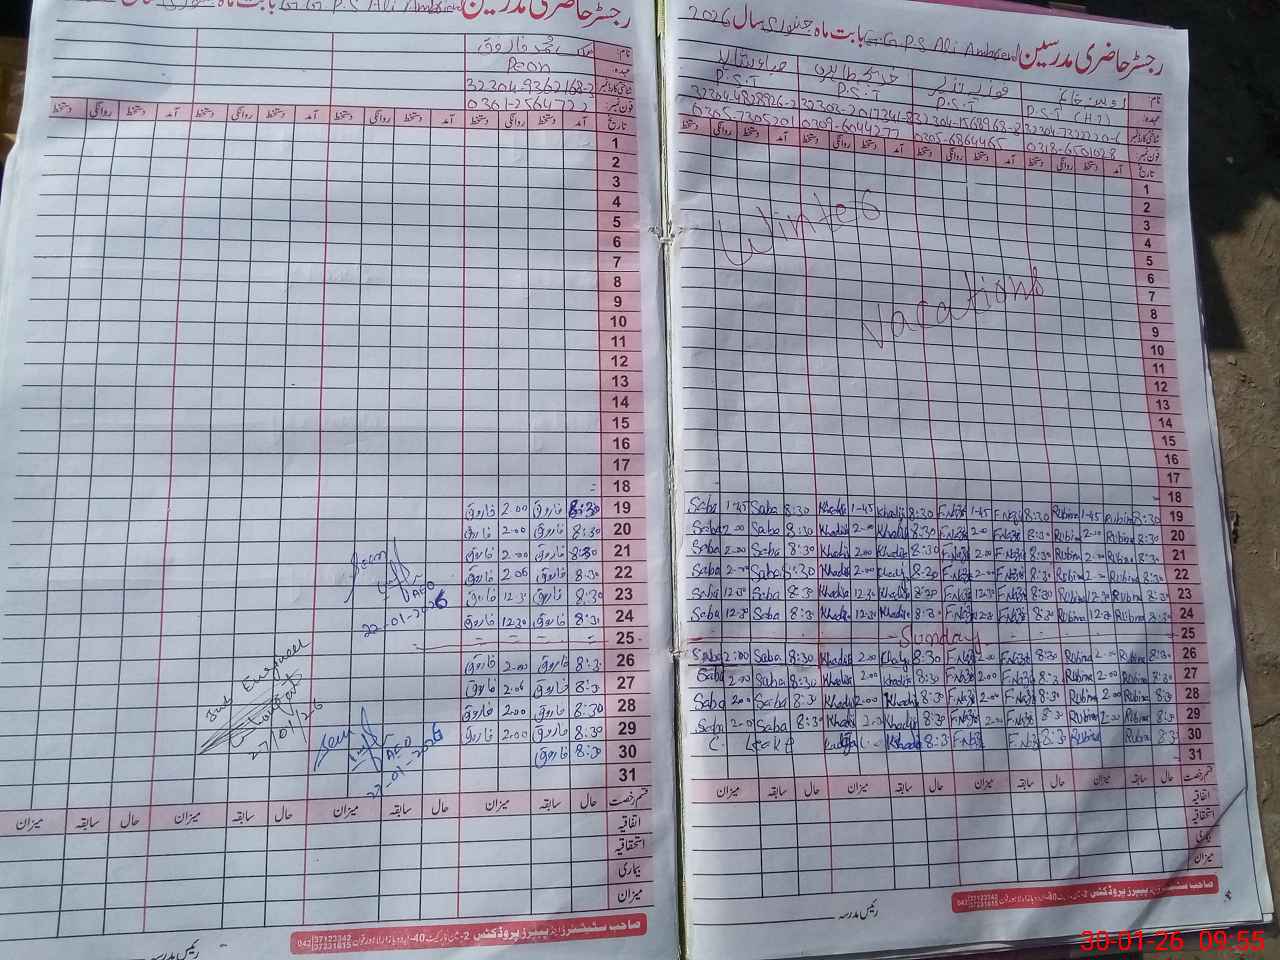 رجسٹر حاضری مدرسین G.G.P.S Ali Ambreed بابت ماہ جنوری سال 2026
نام: خدیجہ طاہرہ
عہدہ: P.S.T (H.T) P.S.T P.S.T P.S.T
شناختی کارڈ نمبر 32304-7322220-6 32304-1568968-2 32303-2017341-8 32304-4828926-2
فون نمبر: 0318-6501028 0305-6864465 0309-6044277 0305-7305201
تاریخ آمد دستخط روانگی دستخط آمد دستخط روانگی دستخط آمد دستخط روانگی دستخط آمد دستخط روانگی دستخط
1
2
3
4
5
6
7
8
9
10
11
12
13
14
15
16
17
18
Winter
vacations
19 8:30 Rubina 1-45 Rubina 8:30 F.Nazir 1-45 F.Nazir 8:30 Khadija 1-45 Khadija 8:30 Saba 1-45 Saba
20 8:30 Rubina 2-00 Rubina 8:30 F.Nazir 2-00 F.Nazir 8:30 Khadija 2-00 Khadija 8:30 Saba 2-00 Saba
21 8:30 Rubina 2-00 Rubina 8:30 F.Nazir 2-00 F.Nazir 8:30 Khadija 2-00 Khadija 8:30 Saba 2-00 Saba
22 8:30 Rubina 2-00 Rubina 8:30 F.Nazir 2-00 F.Nazir 8:30 Khadija 2-00 Khadija 8:30 Saba 2-00 Saba
23 8:30 Rubina 12:30 Rubina 8:30 F.Nazir 12:30 F.Nazir 8:30 Khadija 12:30 Khadija 8:30 Saba 12:30 Saba
24 8:30 Rubina 12:30 Rubina 8:30 F.Nazir 12:30 F.Nazir 8:30 Khadija 12:30 Khadija 8:30 Saba 12:30 Saba
25 Sunday
26 8:30 Rubina 2-00 Rubina 8:30 F.Nazir 2-00 F.Nazir 8:30 Khadija 2-00 Khadija 8:30 Saba 2:00 Saba
27 8:30 Rubina 2-00 Rubina 8:30 F.Nazir 2-00 F.Nazir 8:30 Khadija 2-00 Khadija 8:30 Saba 2-00 Saba
28 8:30 Rubina 2-00 Rubina 8:30 F.Nazir 2-00 F.Nazir 8:30 Khadija 2-00 Khadija 8:30 Saba 2-00 Saba
29 8:30 Rubina 2:00 Rubina 8:30 F.Nazir 2-00 F.Nazir 8:30 Khadija 2-00 Khadija 8:30 Saba 2-00 Saba
30 8:3 Rubina Rubina 8:3 F.Nazir F.Nazir 8:3 Khadija Khadija C. Leave
31
قسم رخصت حال سابقہ میزان حال سابقہ میزان حال سابقہ میزان حال سابقہ میزان
اتفاقیہ
استحقاقیہ
بیماری
میزان
صاحب سٹیشنرز اینڈ پیپرز پروڈکٹس
042 37122342 37231615
رئیس مدرسہ
رجسٹر حاضری مدرسین G.G.P.S Ali Ambreed بابت ماہ جنوری
نام: محمد فاروق
عہدہ: Peon
شناختی کارڈ نمبر 32304-9362168-2
فون نمبر: 0301-2564722
تاریخ آمد دستخط روانگی دستخط آمد دستخط روانگی دستخط آمد دستخط روانگی دستخط آمد دستخط روانگی دستخط
1
2
3
4
5
6
7
8
9
10
11
12
13
14
15
16
17
18
19 8:30 فاروق 2.00 فاروق
20 8:30 فاروق 2.00 فاروق
21 8:30 فاروق 2.00 فاروق
22 8:30 فاروق 2.00 فاروق
23 8:30 فاروق 12.30 فاروق
24 8:30 فاروق 12.30 فاروق
25
26 8:30 فاروق 2.00 فاروق
27 8:30 فاروق 2.00 فاروق
28 8:30 فاروق 2.00 فاروق
29 8:30 فاروق 2.00 فاروق
30 8:30 فاروق
31
AEO
22-01-2026
Sub Engineer
27/01/26
AEO
27-01-2026
قسم رخصت حال سابقہ میزان حال سابقہ میزان حال سابقہ میزان حال سابقہ میزان
اتفاقیہ
استحقاقیہ
بیماری
میزان
صاحب سٹیشنرز اینڈ پیپرز پروڈکٹس
042 37122342 37231615
رئیس مدرسہ
30-01-26 09:55